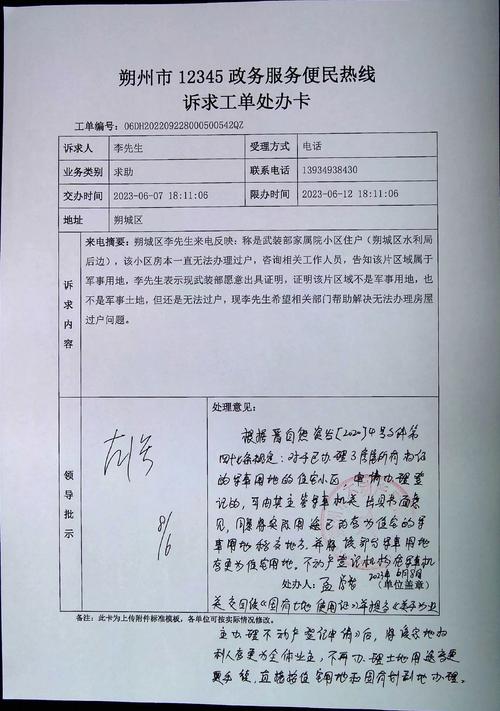 朔州市 12345 政务服务便民热线
诉求工单处办卡
工单编号：06DH202209228000500542QZ
诉求人 李先生 受理方式 电话
业务类别 求助 联系电话 13934938430
交办时间 2023-06-07 18:11:06 限办时间 2023-06-12 18:11:06
地址 朔城区
诉求内容
来电摘要：朔城区李先生来电反映：称是武装部家属院小区住户（朔城区水利局
后边），该小区房本一直无法办理过户，咨询相关工作人员，告知该片区域属于
军事用地，李先生表示现武装部愿意出具证明，证明该片区域不是军事用地，也
不是军事土地，但还是无法过户，现李先生希望相关部门帮助解决无法办理房屋
过户问题。
领导批示
8/6
处理意见：
根据晋自然资发[2020]4号文件第
四十七条规定：对于已办理了房屋所有权证
的军事用地的住宅小区，申请办理登
记的，可由其主管军事机关出具书面意
见，同意将实际用途已改变为住宅的军
事用地移交地方，并将该部分军事用地
变更为住宅用地，不动产登记机构在军事机
承办人：孟 2023年6月8日
（单位盖章）
关交回《国有土地使用证》并
备注：此卡为上传附件标准模板，各单位可按实际情况修改。
主办理不动产登记申请》后，将该宗地权
利人变更为全体业主，不再办理土地用途变更
手续，直接按住宅用地和国有划拨地办理。